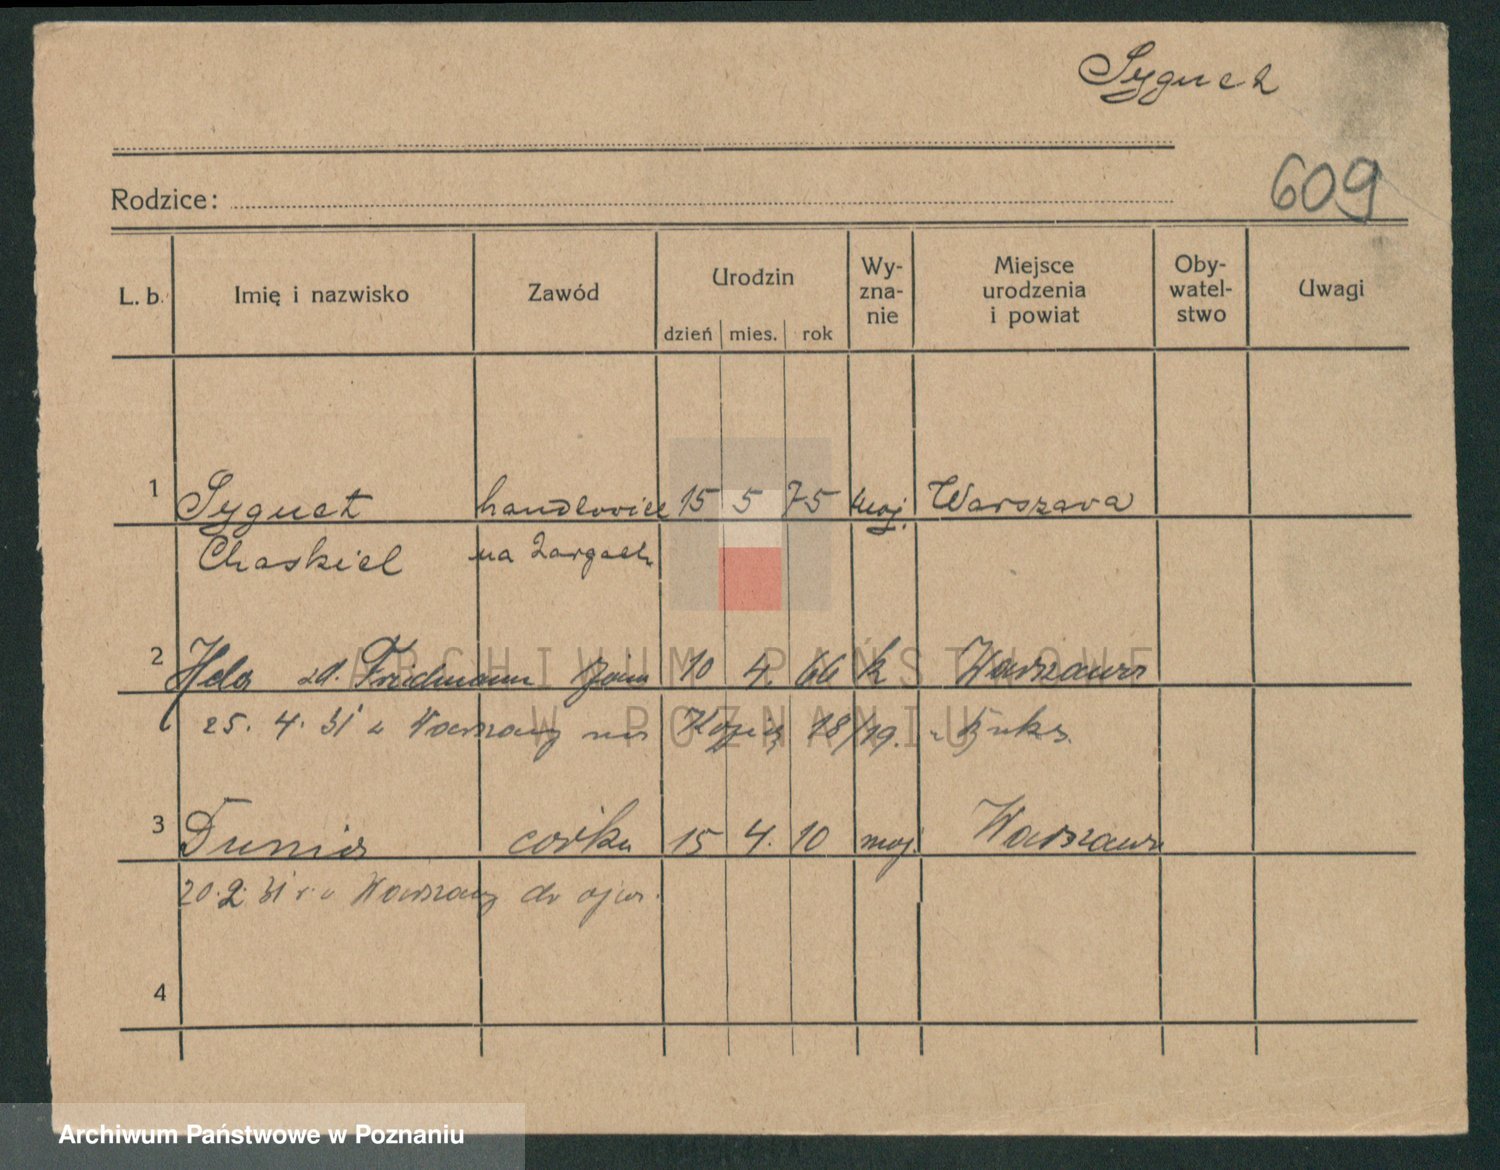 Sygnet
609
Rodzice:
L. b. Imię i nazwisko Zawód Urodzin dzień mies. rok Wy-zna-nie Miejsce urodzenia i powiat Oby-watel-stwo Uwagi
1 Sygnet handlowiec 15 5 75 moj. Warszawa
Chaskiel na targach
2 Hela zd. Fridmann żona 10 4. 66 k Warszawa
25. 4. 31 z Warszawy 18/19.
3 córka 15 4. 10 moj. Warszawa
20. 2. 31 r. z Warszawy do ojca.
4
ARCHIWUM PAŃSTWOWE
W POZNANIU
Archiwum Państwowe w Poznaniu